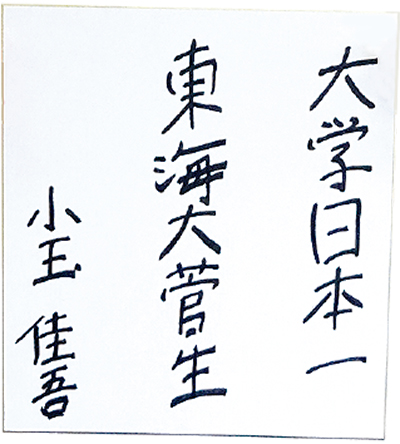 大学日本一
東海大菅生
小玉佳吾